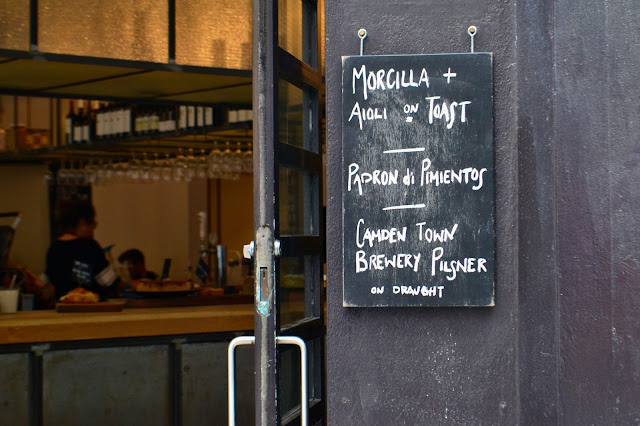 MORCILLA +
AIOLI ON TOAST
PADRON di PIMIENTOS
CAMDEN TOWN
BREWERY PILSNER
ON DRAUGHT